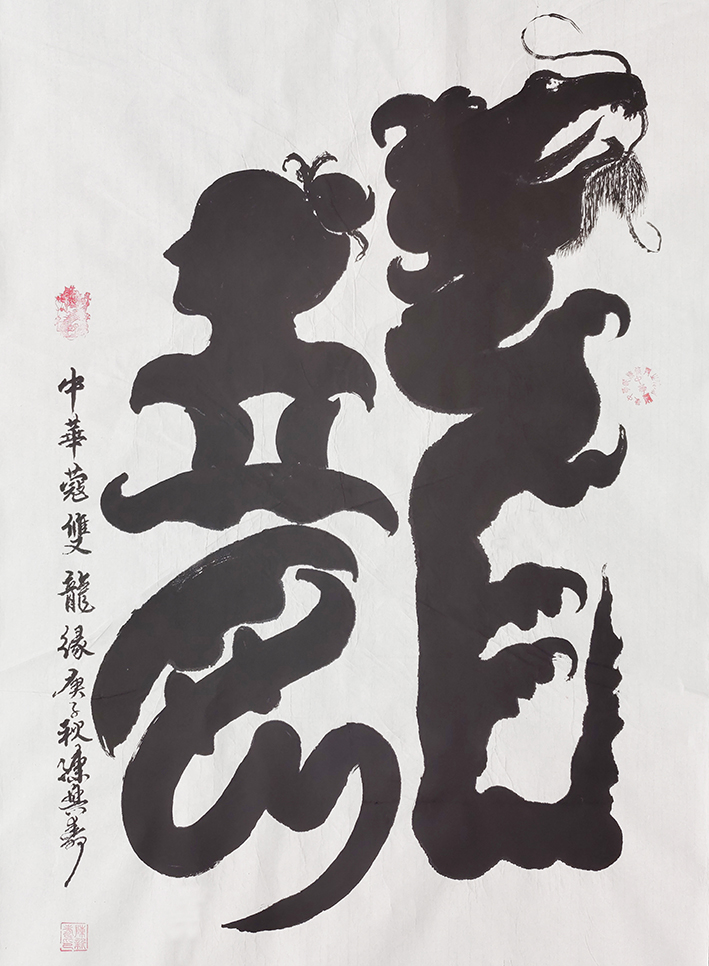 龍
中華蔻雙龍緣庚子秋陳興壽